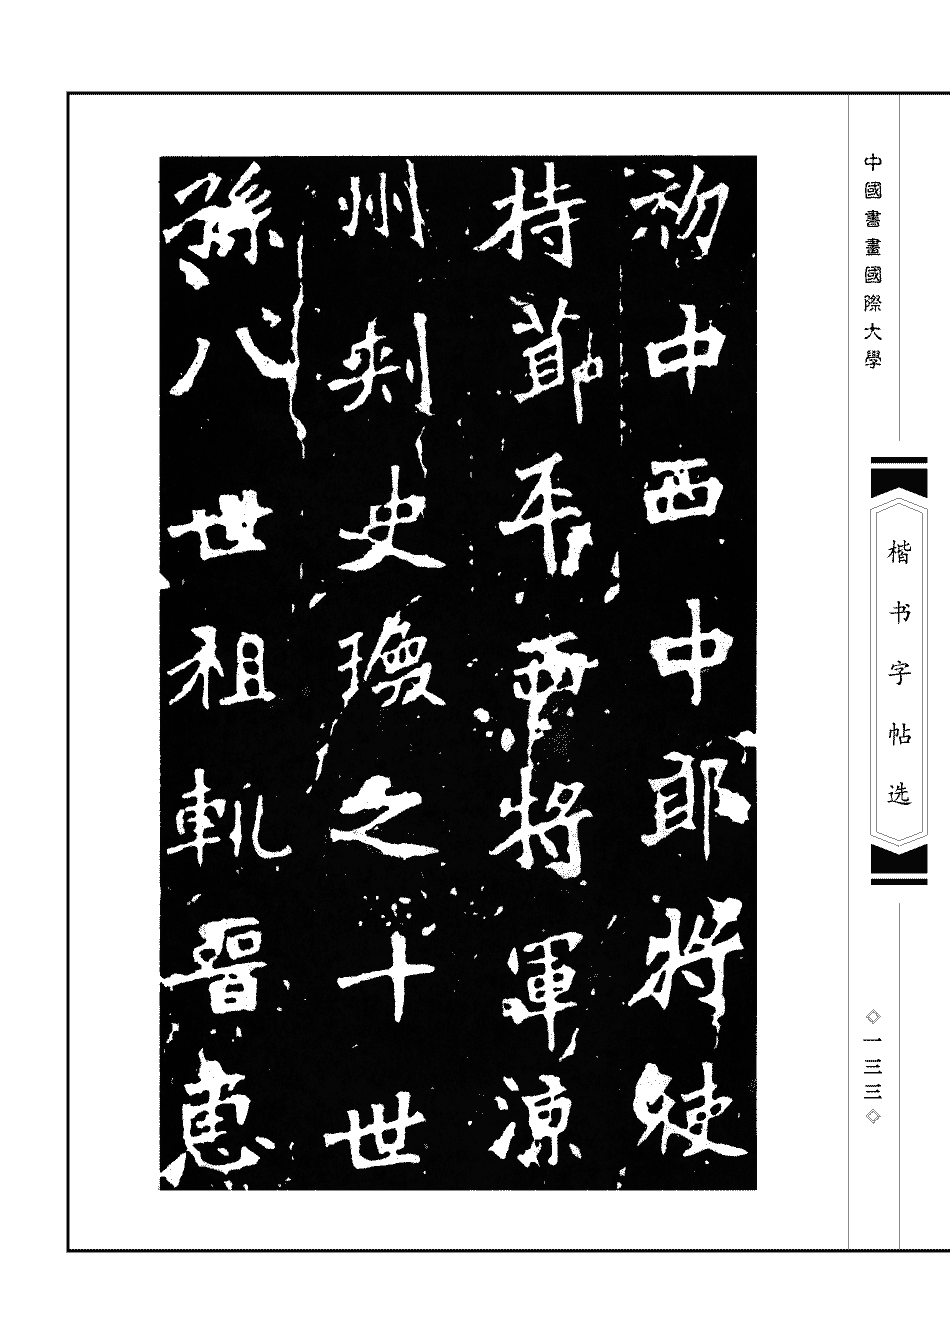 中國書畫國際大學
楷书字帖选
一三三
初中西中郎將使
持節平西將軍涼
州刾史瓊之十世
孫八世祖軌晉惠